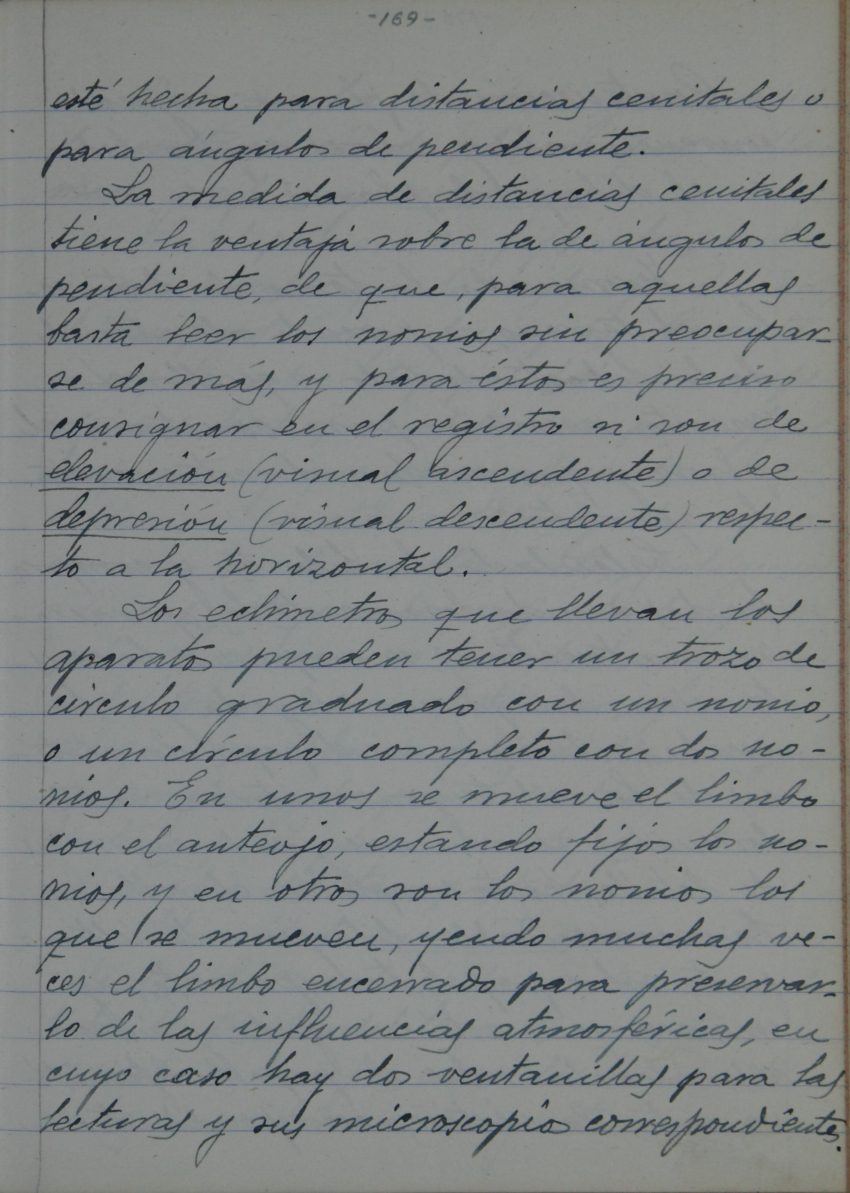 -169-
esté hecha para distancias cenitales o
para ángulos de pendiente.
La medida de distancias cenitales
tiene la ventaja sobre la de ángulos de
pendiente, de que, para aquellas
basta leer los nonios sin preocupar-
se de más, y para éstos es preciso
consignar en el registro si son de
elevación (visual ascendente) o de
depresión (visual descendente) respec-
to a la horizontal.
Los eclímetros que llevan los
aparatos pueden tener un trozo de
círculo graduado con un nonio,
o un círculo completo con dos no-
nios. En unos se mueve el limbo
con el anteojo, estando fijos los no-
nios, y en otros son los nonios los
que se mueven, yendo muchas ve-
ces el limbo encerrado para preservar-
lo de las influencias atmosféricas, en
cuyo caso hay dos ventanillas para las
lecturas y sus microscopios correspondientes.